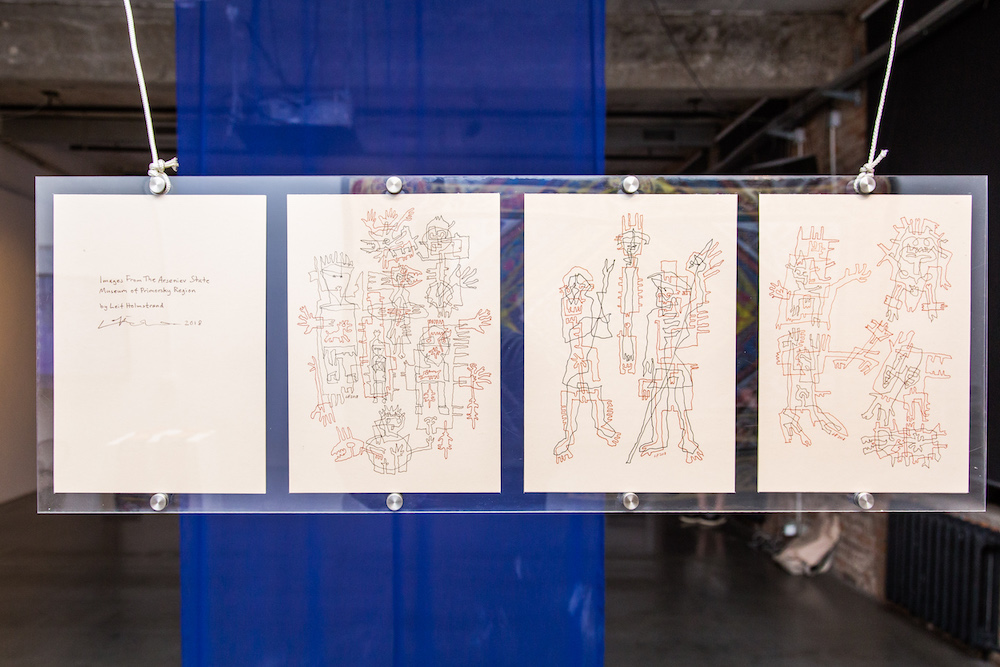 Images From The Arseniev State
Museum of Primorsky Region
by Leif Holmstrand
2018